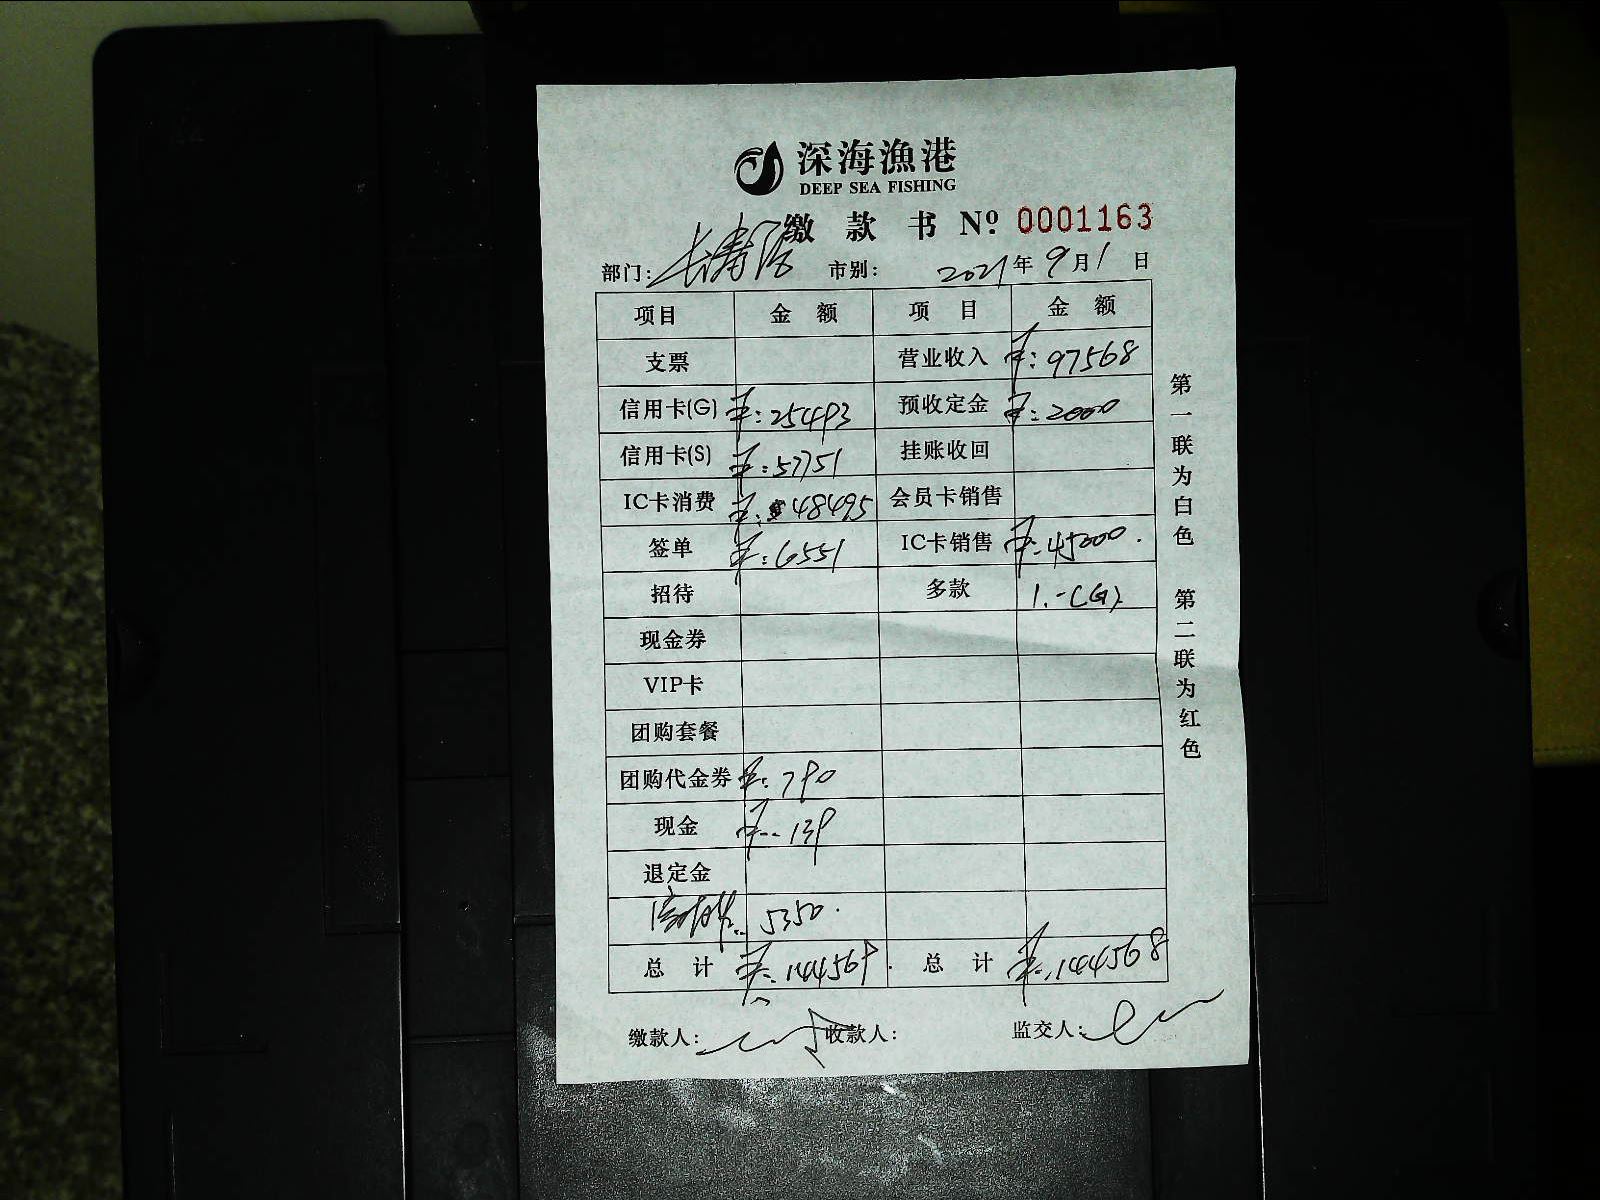 深海漁港
DEEP SEA FISHING
缴款书 Nº: 0001163
部门: 长寿路 市别: 2021年9月1日
项目 金额 项目 金额
支票 营业收入 ¥:97568
信用卡(G) ¥:25493 预收定金 ¥:2000
信用卡(S) ¥:57751 挂账收回
IC卡消费 ¥:48495 会员卡销售
签单 ¥:6551 IC卡销售 ¥:45000.
招待 多款 1.-(G)
现金券
VIP卡
团购套餐
团购代金券 ¥:790
现金 ¥:139
退定金
5350.
总计 ¥:144569. 总计 ¥:144568
缴款人: 收款人: 监交人:
第一联为白色 第二联为红色